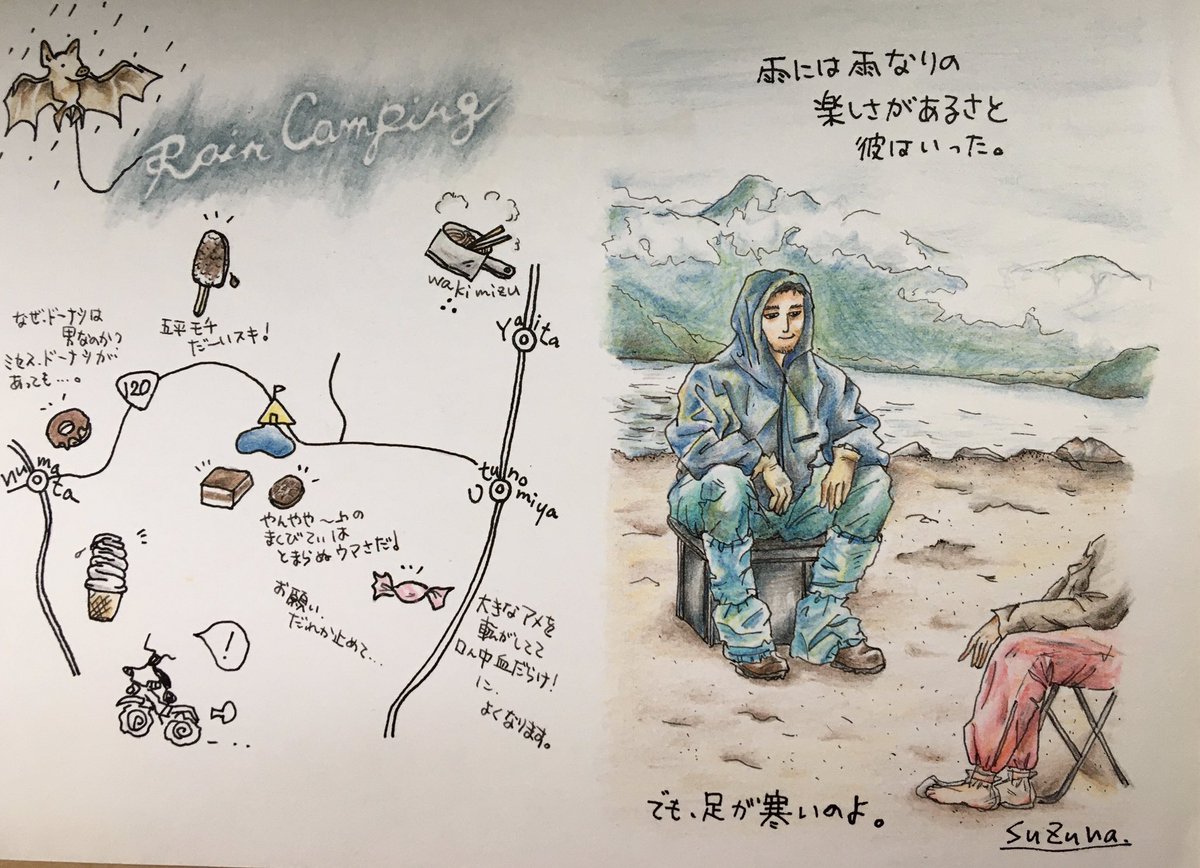 Rain Camping
wakimizu
なぜ、ドーナツは
男なのか?
ミセス、ドーナツが
あっても…。
五平モチ
だーいスキ!
120
Yaita
numata
utunomiya
やんやや〜ムの
まくびてぃは
とまらぬウマさだ♪
お願い、
だれか止めて…
大きなアメを
転がしてて
口ん中血だらけ!
に、
よくなります。
!
雨には雨なりの
楽しさがあるさと
彼はいった。
でも、足が寒いのよ。
Suzuna.